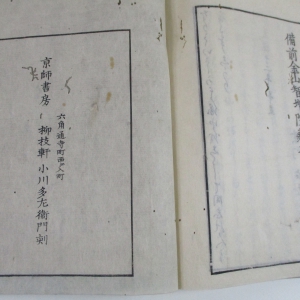 備前金山智坊門
六角通寺町西へ入町
京師書房 柳枝軒 小川多左衛門刻